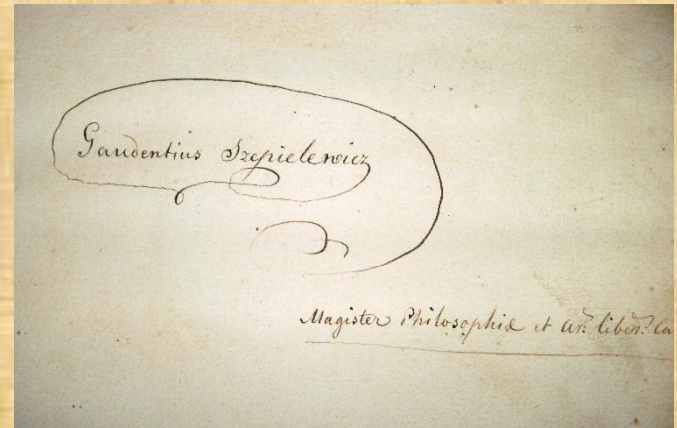 Gaudentius Szepielewicz
Magister Philosophiæ et ar: liber: